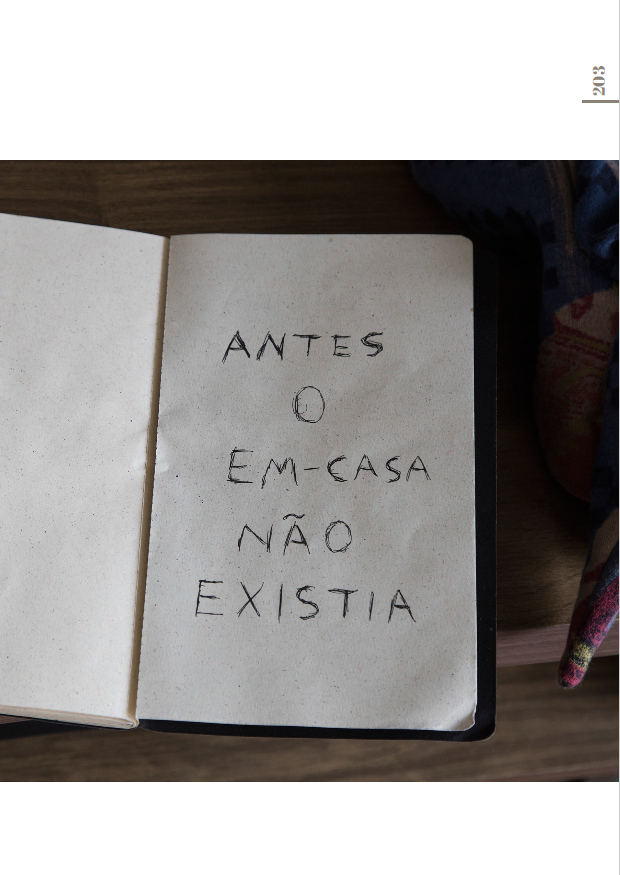 203
ANTES
O
EM-CASA
NÃO
EXISTIA